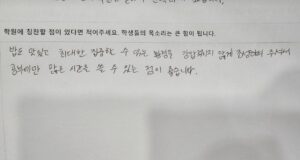 학원에 칭찬할 점이 있다면 적어주세요. 학생들의 목소리는 큰 힘이 됩니다.
밥도 맛있고 최대한 집중할 수 있는 환경을 강압적이지 않게 조성해 주셔서
공부에만 많은 시간을 쓸 수 있는 점이 좋습니다.